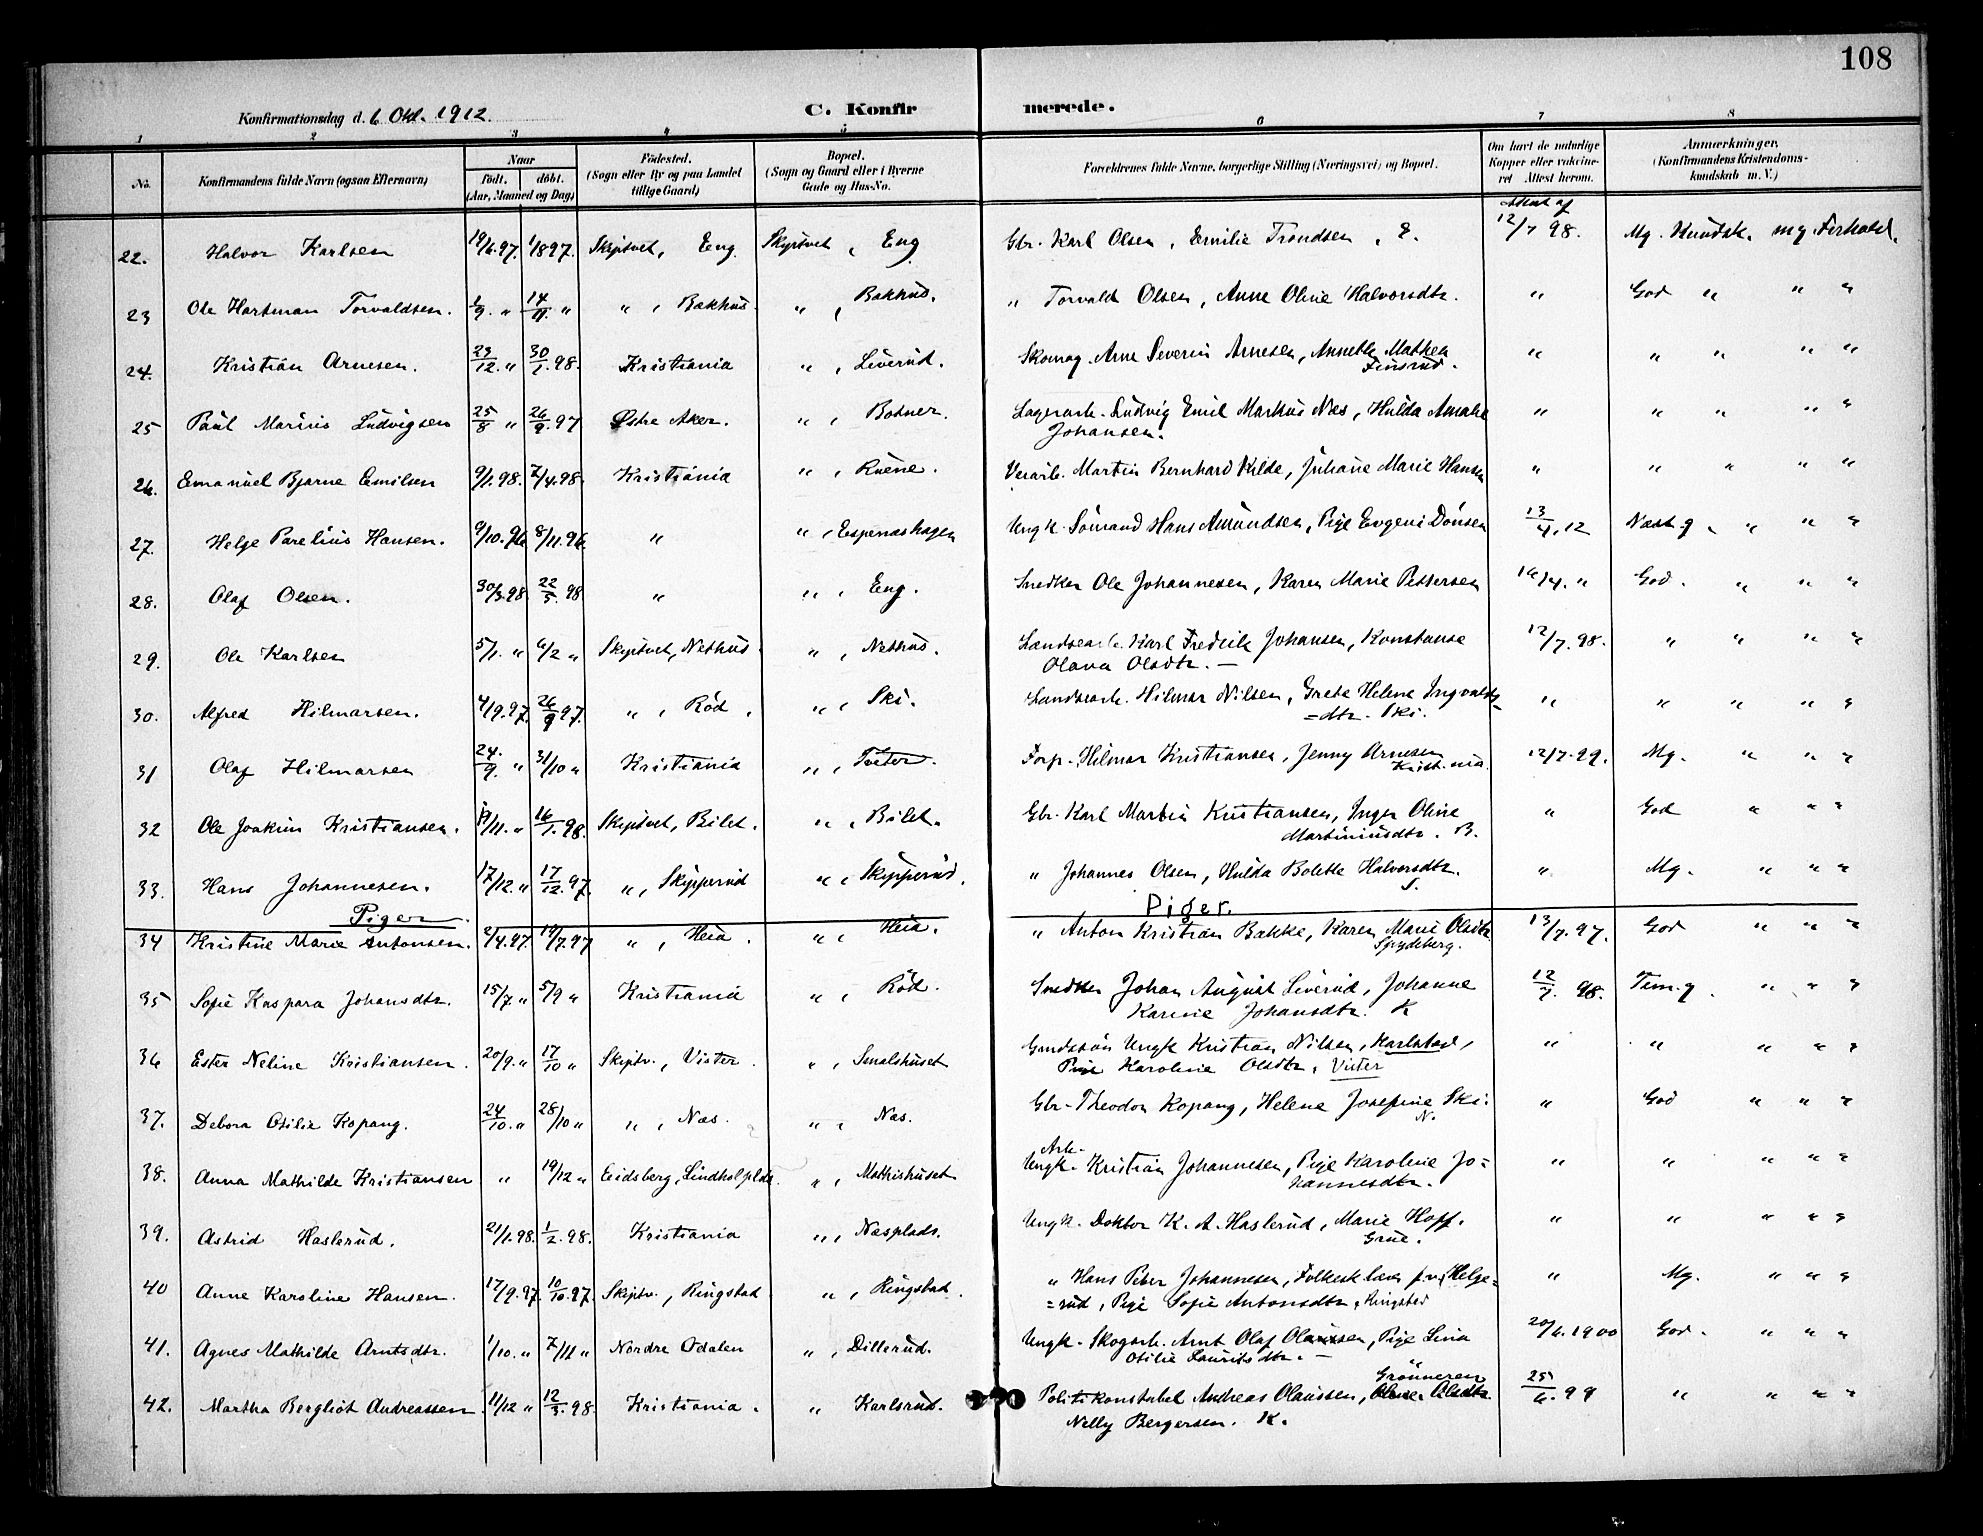 108
Konfirmationsdag d. 6 Okt. 1912.
C. Konfirmerede.
1 2 3 4 5 6 7 8
No. Konfirmandens fulde Navn (ogsaa Efternavn) Naar født. døbt. (Aar, Maaned og Dag) Fødested. (Sogn eller By og paa Landet tillige Gaard) Bopæl. (Sogn og Gaard eller i Byerne Gade og Hus-No. Forældrenes fulde Navne, borgerlige Stilling (Næringsvei) og Bopæl. Om havt de naturlige Kopper eller vakcineret Attest herom. Anmærkninger. (Konfirmandens Kristendomskundskab m. V.)
Attest af
22. Halvor Karlsen 19/6.97. 1/8 97. Skiptvet, Eng. Skiptvet, Eng Gbr. Karl Olsen, Emilie Trondsen, E. 12/7 98. Mg. Kundsk. mg. Forhold.
23 Ole Hartman Torvaldsen. 1/9. " 14/11. " " , Bakhus. " , Bakhus. " Torvald Olsen, Anne Oline Halvorsdtr. " God " " "
24. Kristian Arnesen. 23/12. " 30/1.98. Kristiania " , Liverud. Skomag. Arne Severin Arnesen, Annette Mathea " " " " "
Finsrud.
25 Paul Marius Ludvigsen 25/8 " 26/9.97 Østre Aker. " , Botner. Lagerarb. Ludvig Emil Markus Næs, Hulda Amalie " " " " "
Johansen.
26. Emanuel Bjarne Emilsen 9/1.98. 7/4.98. Kristiania " , Ruene. Martin Bernhard Kilde, Juliane Marie Hansen " " " " "
27. Helge Parelius Hansen. 9/10.96 8/11.96. " " , Espenashagen Ungk. Sömand Hans Amundsen, Pige Evgeni Dönsen 13/4.12 Næst g. " " "
28. Olaf Olsen. 30/3.98 22/5.98 " " , Eng. Snedker Ole Johannesen, Karen Marie Pettersen 16/4. " God. " " "
29. Ole Karlsen 5/1. " 6/2 " Skiptvet, Nethus. " , Nethus. Landbearb. Karl Fredrik Johansen, Konstanse 12/7.98. " " " "
Olava Olsdtr. —
30. Alfred Hilmarsen. 4/9.97. 26/9 97. " , Röd. " , Ski. Landbearb. Hilmar Nilsen, Grete Helene Ingvalds " " " " "
=dtr. Ski.
31 Olaf Hilmarsen 24/9. " 31/10 " Kristiania " , Tveter. Forp. Hilmar Kristiansen, Jenny Arnesen 12/7.99. Mg. " " "
Krist.nia.
32 Ole Joakim Kristiansen. 19/11. " 16/1.98. Skiptvet, Bilet. " , Bilet. Gbr. Karl Martin Kristiansen, Inger Oline " God " " "
Martiniusdtr. B.
33. Hans Johannesen. 17/12. " 17/12.97. " , Skipperud " , Skipperud. " Johannes Olsen, Hulda Bolette Halvorsdtr. " Mg. " " "
S.
Piger. Piger.
34 Kristine Marie Antonsen. 2/4.97. 19/7.97 " , Heia. " , Heia. " Anton Kristian Bakke, Karen Marie Olsdtr. 13/7.97. God " " "
Spydeberg.
35 Sofie Kaspara Johansdtr. 15/7 " 5/9 " Kristiania " , Röd. Snedker Johan August Liverud, Johanne 12/7. 98. Tem. g. " " "
Karine Johansdtr. K
36 Ester Neline Kristiansen. 20/9. " 17/10 " Skiptv., Vister. " , Smalshuset Ungk Kristian Nilsen, Karlstad, " " " " "
Pige Karoline Olsdtr, Vister
37. Debora Otilie Kopang. 24/10. " 28/10 " " , Næs. " , Næs. Gbr. Theodor Kopang, Helene Josefine Ski. " God " " "
N.
Arb.
38. Anna Mathilde Kristiansen " 19/12 " Eidsberg, " , Mathishuset Ungk. Kristian Johannesen, Pige Karoline Jo= " " " " "
hannesdtr.
39. Astrid Haslerud. 21/1.98. 1/2.98. Kristiania " , Næsplads. Ungk. Doktor K. A. Haslerud, Marie Hoff. " " " " "
Grue.
40 Anne Karoline Hansen. 17/9.97. 10/10.97. Skiptv., Ringstad " , Ringstad. " Hans Peter Johannesen, Folkesk.lærer p.v. Helge= " Mg. " " "
=rud, Pige Sofie Antonsdtr, Ringstad
41. Agnes Mathilde Arntsdtr. 1/10. " 7/11 " Nordre Odalen " , Dillerud. Ungk. Skogarb. Arnt Olaf Olaussen, Pige Lina 20/6.1900 God. " " "
Otilie Lauritsdtr. —
Grönneren
42. Martha Bergliot Andreassen 11/12 " 12/3.98. Kristiania. " Karlsrud. Politikonstabel Andreas Olaussen, Oline Olsdtr. 25/6.99 " " " "
Nelly Bergersen. K.